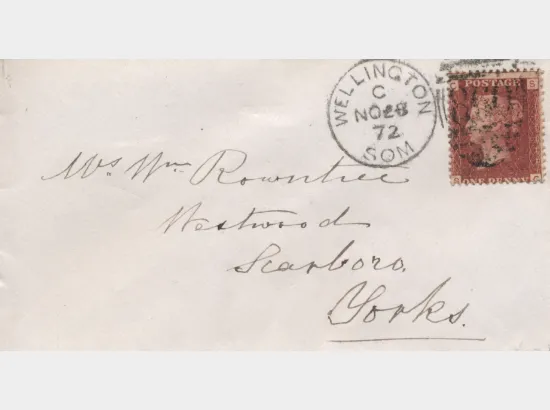 WELLINGTON
C
NO28
72
SOM
POSTAGE
ONE PENNY
Mrs Wm Rowntree
Westwood
Scarboro.
Yorks.